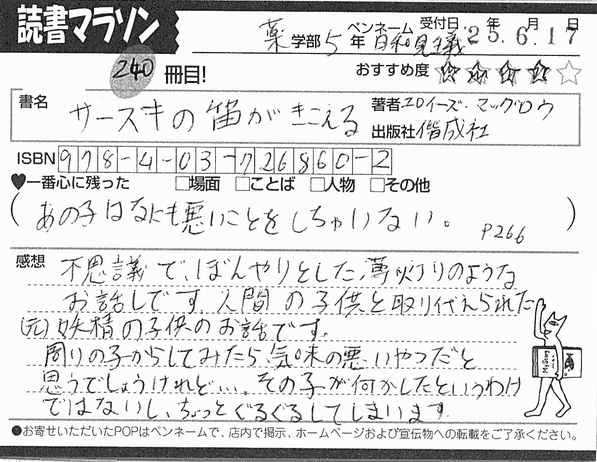 読書マラソン
薬学部5年 ペンネーム 日和見主義 受付日 25年6月17日
240冊目!
おすすめ度 ★★★★☆
書名 サースキの笛がきこえる
著者 エロイーズ・マッグロウ
出版社 偕成社
ISBN 978-4-03-726860-2
♥一番心に残った □場面 □ことば □人物 □その他
(あの子はなにも悪いことをしちゃいない。 P266)
感想 不思議で、ぼんやりとした、薄灯りのような
お話しです。人間の子供と取り代えられた
(元)妖精の子供のお話です。
周りの子からしてみたら、気味の悪いやつだと
思うでしょうけれど…。その子が何かしたというわけ
ではないし、ちょっとぐるぐるしてしまいます。
●お寄せいただいたPOPはペンネームで、店内で掲示、ホームページおよび宣伝物への転載をご了承ください。